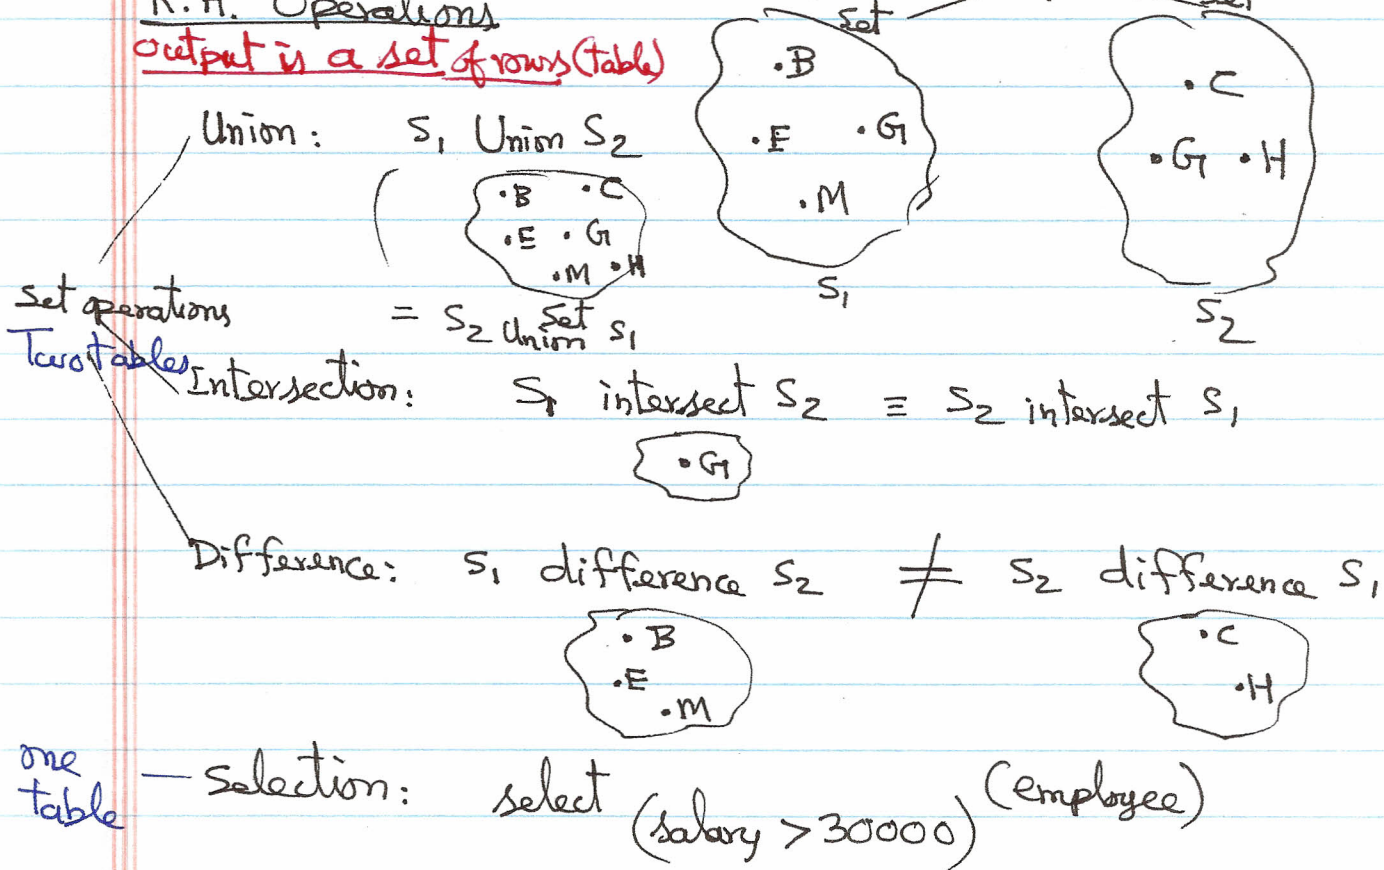 R.A. Operations
Output is a set of rows (table)
Set
.B
.E .G
.M
S1
.C
.G .H
S2
Union: S1 Union S2
.B .C
.E .G
.M .H
Set
= S2 Union S1
Set operations
Two tables
Intersection: S1 intersect S2 ≡ S2 intersect S1
.G
Difference: S1 difference S2 ≠ S2 difference S1
.B
.E
.M
.C
.H
one
table
Selection: select (salary > 30000) (employee)